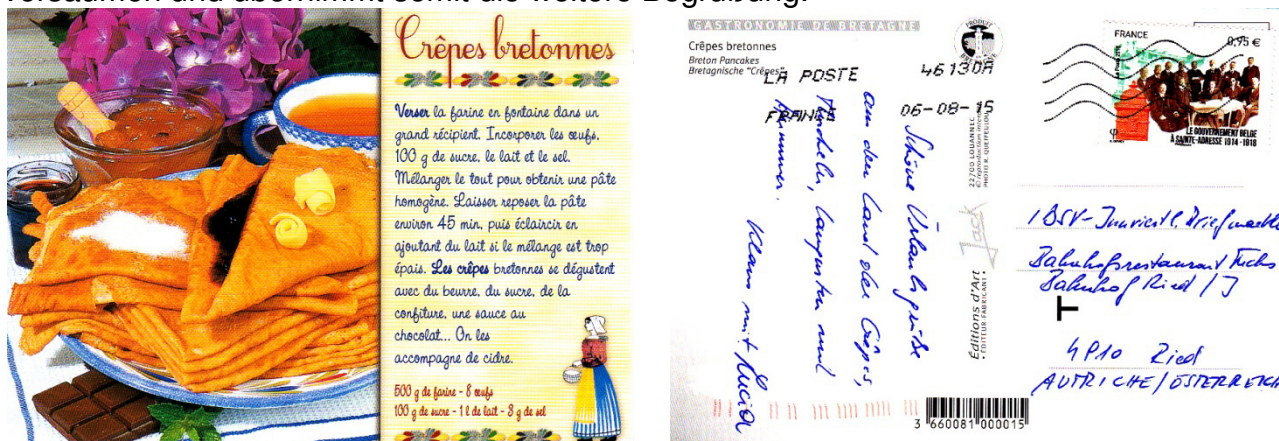 versäumen und übernimmt somit die weitere Begrüßung.
Crêpes bretonnes
Verser la farine en fontaine dans un
grand récipient. Incorporer les œufs,
100 g de sucre, le lait et le sel.
Mélanger le tout pour obtenir une pâte
homogène. Laisser reposer la pâte
environ 45 min, puis éclaircir en
ajoutant du lait si le mélange est trop
épais. Les crêpes bretonnes se dégustent
avec du beurre, du sucre, de la
confiture, une sauce au
chocolat... On les
accompagne de cidre.
500 g de farine - 8 œufs
100 g de sucre - 1 l de lait - 3 g de sel
GASTRONOMIE DE BRETAGNE
Crêpes bretonnes
Breton Pancakes
Bretagnische "Crêpes"
LA POSTE
46130A
FRANCE
06-08-15
PRODUIT
Schöne Urlaubsgrüße
aus dem Land der Crêpes,
Muscheln, Langusten und
Hummer.
Klaus mit Lucia
22700 LOUANNEC
PHOTO R. QUEFFEULOU
Jack
Éditions d'Art
• ÉDITEUR FABRICANT •
3 660081 000015
FRANCE
0,95 €
LE GOUVERNEMENT BELGE
À SAINTE-ADRESSE 1914-1918
IBSV-
Bahnhofsrestaurant Fuchs
Bahnhof Ried / I
T
4910 Ried
AUTRICHE / ÖSTERREICH